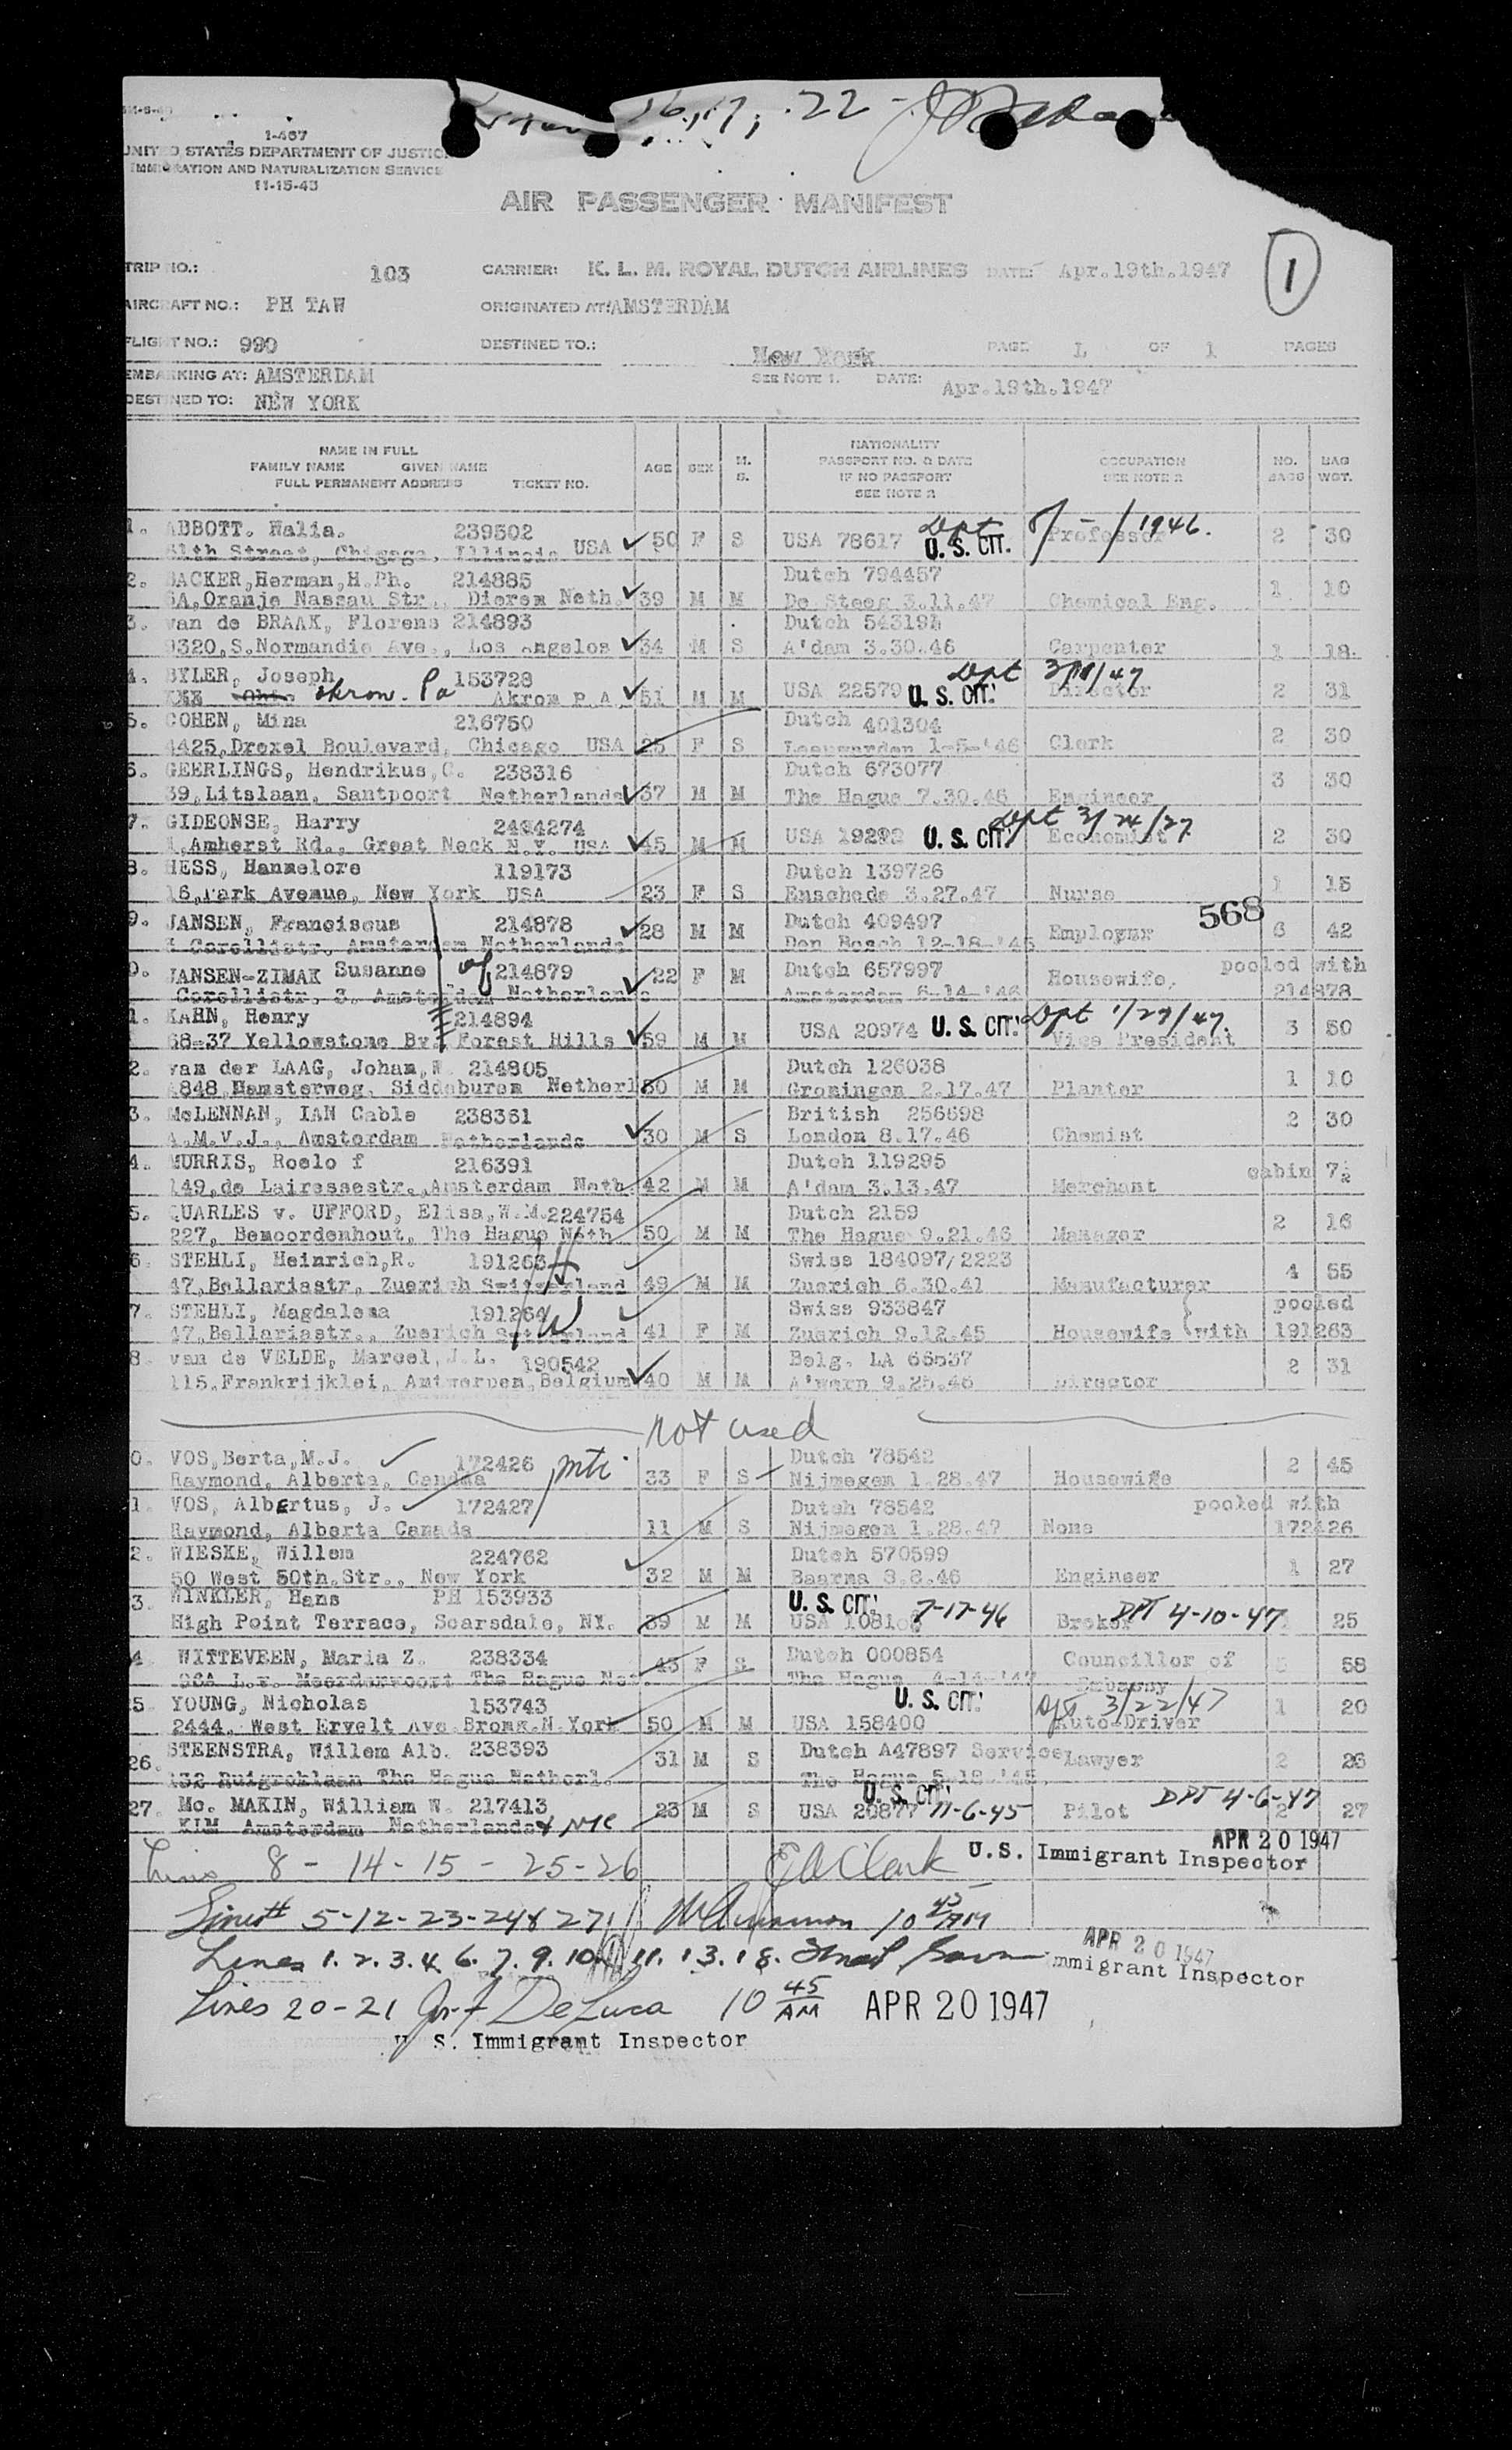 16, 17, 22 -
1-467
UNITED STATES DEPARTMENT OF JUSTICE
IMMIGRATION AND NATURALIZATION SERVICE
11-15-43
AIR PASSENGER MANIFEST
TRIP NO.: 103 CARRIER: K. L. M. ROYAL DUTCH AIRLINES DATE: Apr.19th.1947 1
AIRCRAFT NO.: PH TAW ORIGINATED AT: AMSTERDAM
FLIGHT NO.: 990 DESTINED TO.: New York PAGE 1 OF 1 PAGES
EMBARKING AT: AMSTERDAM SEE NOTE 1. DATE: Apr.19th.1947
DESTINED TO: NEW YORK
NAME IN FULL
FAMILY NAME GIVEN NAME
FULL PERMANENT ADDRESS TICKET NO. AGE SEX M. S. NATIONALITY PASSPORT NO. & DATE IF NO PASSPORT SEE NOTE 2 OCCUPATION SEE NOTE 2 NO. BAGG BAG WGT.
1. ABBOTT. Walia. 239502 Dpt 8/ - /1946.
61th Street, Chigago, Illinois USA ✓ 50 F S USA 78617 U. S. CIT. Professor 2 30
2. BACKER,Herman,H.Ph. 214885 Dutch 794457
6A,Oranje Nassau Str., Dieren Neth. ✓ 39 M M De Steeg 3.11.47 Chemical Eng. 1 10
3. van de BRAAK, Florens 214893 Dutch 54319h
9320,S.Normandie Ave., Los Angelos ✓ 34 M S A'dam 3.30.46 Carpenter 1 18
4. BYLER, Joseph 153728 Dpt 3/18/47
XXX Ohio Akron. Pa Akrom P.A. ✓ 51 M M USA 22579 U. S. CIT. Director 2 31
5. COHEN, Mina 216750 Dutch 401304
4425,Drexel Boulevard, Chicago USA 25 F S Leeuwarden 1-5-'46 Clerk 2 30
6. GEERLINGS, Hendrikus,C. 238316 Dutch 673077
39,Litslaan, Santpoort Netherlands ✓ 37 M M The Hague 7.30.46 Engineer 3 30
7. GIDEONSE, Harry 2404274 Dpt 3/24/27
1,Amherst Rd., Great Neck N.Y. USA ✓ 45 M M USA 19292 U. S. CIT. Economist 2 30
8. HESS, Hannelore 119173 Dutch 139726
16,Park Avenue, New York USA 23 F S Enschede 3.27.47 Nurse 1 15
9. JANSEN, Franciscus 214878 Dutch 409497 568
Corellistr. Amsterdam Netherlands ✓ 28 M M Den Bosch 12-18-'45 Employer 6 42
0. JANSEN-ZIMAK Susanne wf 214879 Dutch 657997 pooled with
Corellistr. 3. Amsterdam Netherlands ✓ 22 F M Amsterdam 6-14-'46 Housewife, 214878
1. KAHN, Henry 214894 Dpt 1/29/47.
68-37 Yellowstone Bv. Forest Hills ✓ 59 M M USA 20974 U. S. CIT. Vice President 3 50
2. van der LAAG, Johan,W. 214805 Dutch 126038
A848,Hamsterweg, Siddeburen Netherl. 30 M M Groningen 2.17.47 Planter 1 10
3. McLENNAN, IAN Cable 238361 British 256698
A.M.V.J., Amsterdam Netherlands ✓ 30 M S London 8.17.46 Chemist 2 30
4. MURRIS, Roelo f 216391 Dutch 119295
149,de Lairessestr.,Amsterdam Neth 42 M M A'dam 3.13.47 Merchant cabin 7½
5. QUARLES v. UFFORD, Elisa,W.M. 224754 Dutch 2159
227, Benoordenhout, The Hague Neth 50 M M The Hague 9.21.46 Manager 2 16
6. STEHLI, Heinrich,R. 191263 H Swiss 184097/2223
47,Bellariastr, Zuerich Switzerland 49 M M Zuerich 6.30.41 Manufacturer 4 55
7. STEHLI, Magdalena 191264 W Swiss 933847 pooled
47,Bellariastr., Zuerich 41 F M Zuerich 9.12.45 Housewife with 191263
8. van de VELDE, Marcel,J.L. 190542 Belg. LA 66537
115,Frankrijklei, Antwerpen,Belgium ✓ 40 M M A'werp 9.25.46 Director 2 31
not used
0. VOS,Berta,M.J. ✓ 172426 Dutch 78542
Raymond, Alberta, Canada 33 F S Nijmegen 1.28.47 Housewife 2 45
1. VOS, Albertus, J. 172427 Dutch 78542 pooled with
Raymond, Alberta Canada 11 M S Nijmegen 1.28.47 None 172426
2. WIESKE, Willem 224762 Dutch 570599
50 West 50th.Str., New York 32 M M Baarma 8.8.46 Engineer 1 27
3. WINKLER, Hans PH 153933 U. S. CIT. 7-17-46 DPT 4-10-47
High Point Terrace, Scarsdale, NY. 39 M M USA Broker 25
4. WITTEVEEN, Maria Z. 238334 Dutch 000854 Councillor of
The Hague 43 F S The Hague 4-14-'47 Embassy 58
5. YOUNG, Nicholas 153743 U. S. CIT. Dpt 3/22/47
2444, West Ervelt Ave Bronx.N.York 50 M M USA 158400 Auto-Driver 1 20
26. STEENSTRA, Willem Alb. 238393 31 M S Dutch A47897 Service Lawyer 2 26
132 The Hague Netherl. The Hague 5.18.'45.
27. Mc. MAKIN, William W. 217413 23 M S U. S. CIT. USA 20877 11-6-45 Pilot DPT 4-6-47 2 27
KLM Amsterdam Netherlands NYC
Lines 8 - 14 - 15 - 25 - 26 EA Clark U.S. Immigrant Inspector APR 20 1947
Lines# 5-12-23-24 & 27 10 45 AM
Lines 1. 2. 3. 4. 6. 7. 9. 10. 11. 13. 18. APR 20 1947
Immigrant Inspector
Lines 20-21 De Luca 10 45 AM APR 20 1947
U. S. Immigrant Inspector